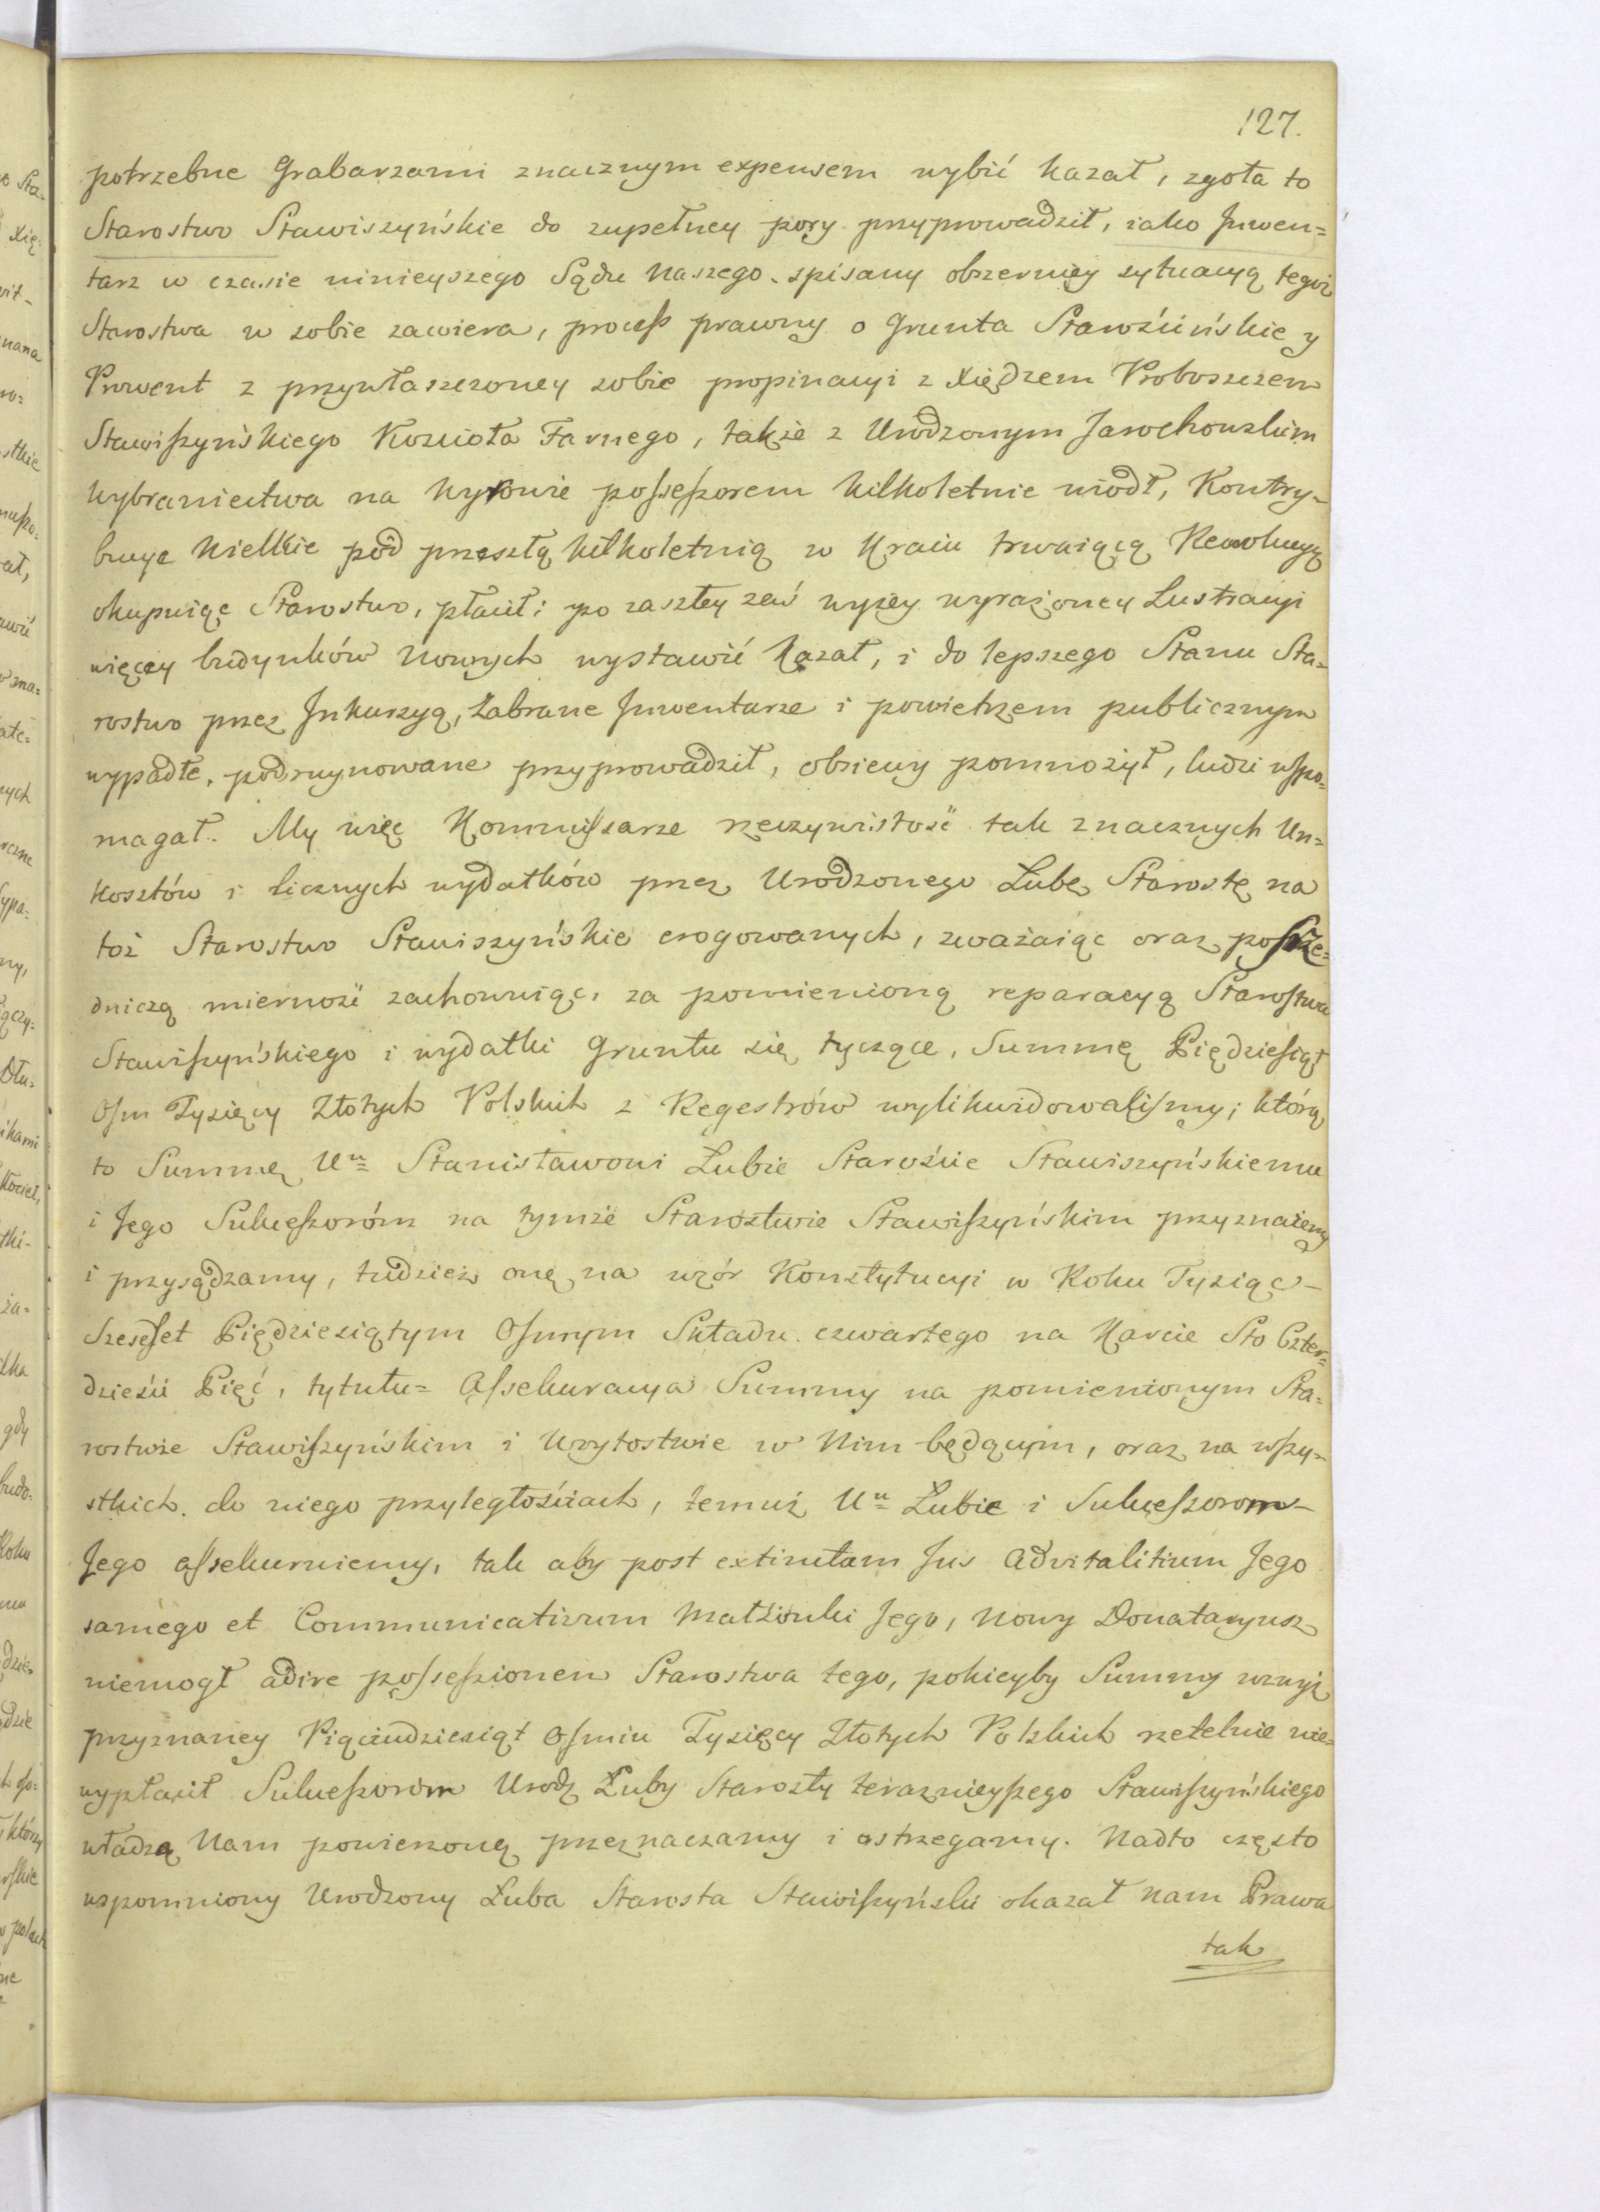 127.
potrzebne Grabarzami znacznym expensem wybić kazał, zgoła to
Starostwo Stawiszyńskie do zupełney pory przyprowadził, iako Jnwen=
tarz w czasie ninieyszego Sądu Naszego spisany obszerniey sytuacyą tegoż
Starostwa w sobie zawiera, process prawny o Grunta Starościńskie y
Prowent z przywłaszczoney sobie propinacyi z Xiędzem Proboszczem
Stawiszyńskiego Kościoła Farnego, także z Urodzonym Jarochowskim
Wybraniectwa na Wyrowie possessorem kilkoletnie wiodł, Kontry-
bucye Wielkie pod przeszłą kilkoletnią w Kraiu trwaiącą Rewolucyą
okupuiąc Starostwo, płacił: po zaszłey zaś wyżey wyrażoney Lustracyi
więcey budynków Nowych wystawić kazał, i do lepszego Stanu Sta=
rostwo przez Jnkursyą, Zabrane Jnwentarze i powietrzem publicznym
wypadłe, podruynowane przyprowadził, obsiewy pomnożył, ludzi wspo=
magał. My więc Kommissarze rzeczywistość tak znacznych Un=
kosztów i licznych wydatków przez Urodzonego Lubę Starostę na
toż Starostwo Stawiszyńskie erogowanych, zważaiąc oraz pośrze=
dniczą mierność zachowuiąc, za pomienioną reparacyą Starostwa
Stawiszyńskiego i wydatki Gruntu się tyczące, Summę Pięćdziesiąt
Osm Tysięcy Złotych Polskich z Regestrów wylikwidowaliśmy; którą
to Summę Uu= Stanisławowi Lubie Staroście Stawiszyńskiemu
i Jego Sukcessoróm na tymże Starostwie Stawiszyńskim przyznaiemy
i przysądzamy, tudzież onę na wzór Konstytucyi w Roku Tysiąc-
Szesćset Pięćdziesiątym Osmym Składu czwartego na Karcie Sto Czter=
dzieści Pięć, tytułu= Assekuracya Summy na pomienionym Sta=
rostwie Stawiszyńskim i Woytostwie w Nim będącym, oraz na wszy=
stkich do niego przyległościach, temuż Uu= Lubie i Sukcessorom-
Jego assekuruiemy, tak aby post extinctam Jus advitalitium Jego
samego et Communicativum Małżonki Jego, Nowy Donataryusz
niemogł adire possessionem Starostwa tego, pokieyby Summy wzwyż
przyznaney Pięciudziesiąt Osmiu Tysięcy Złotych Polskich rzetelnie nie=
wypłacił Sukcessorom Urodz Luby Starosty teraznieyszego Stawiszyńskiego
władzą Nam powierzoną przeznaczamy i ostrzegamy. Nadto często
wspomniony Urodzony Luba Starosta Stawiszyński okazał Nam Prawa
tak